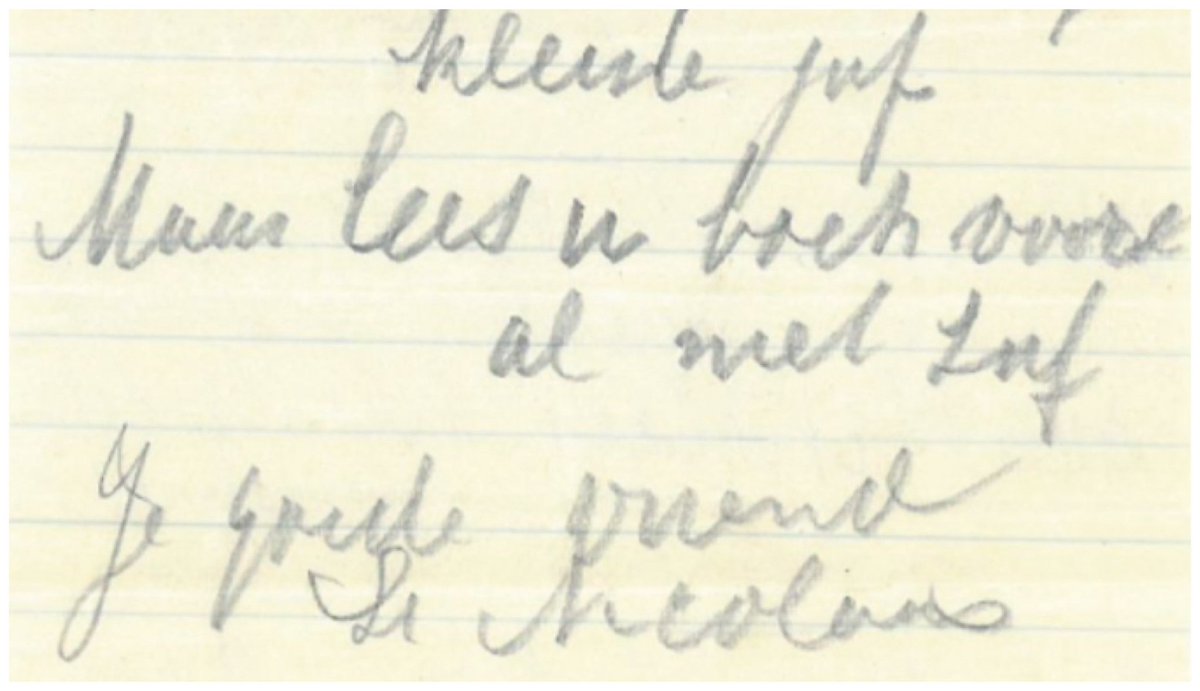 kleinste juf
Maar lees u boek voore
al met zuf
Je goede vriend
St Nicolaas